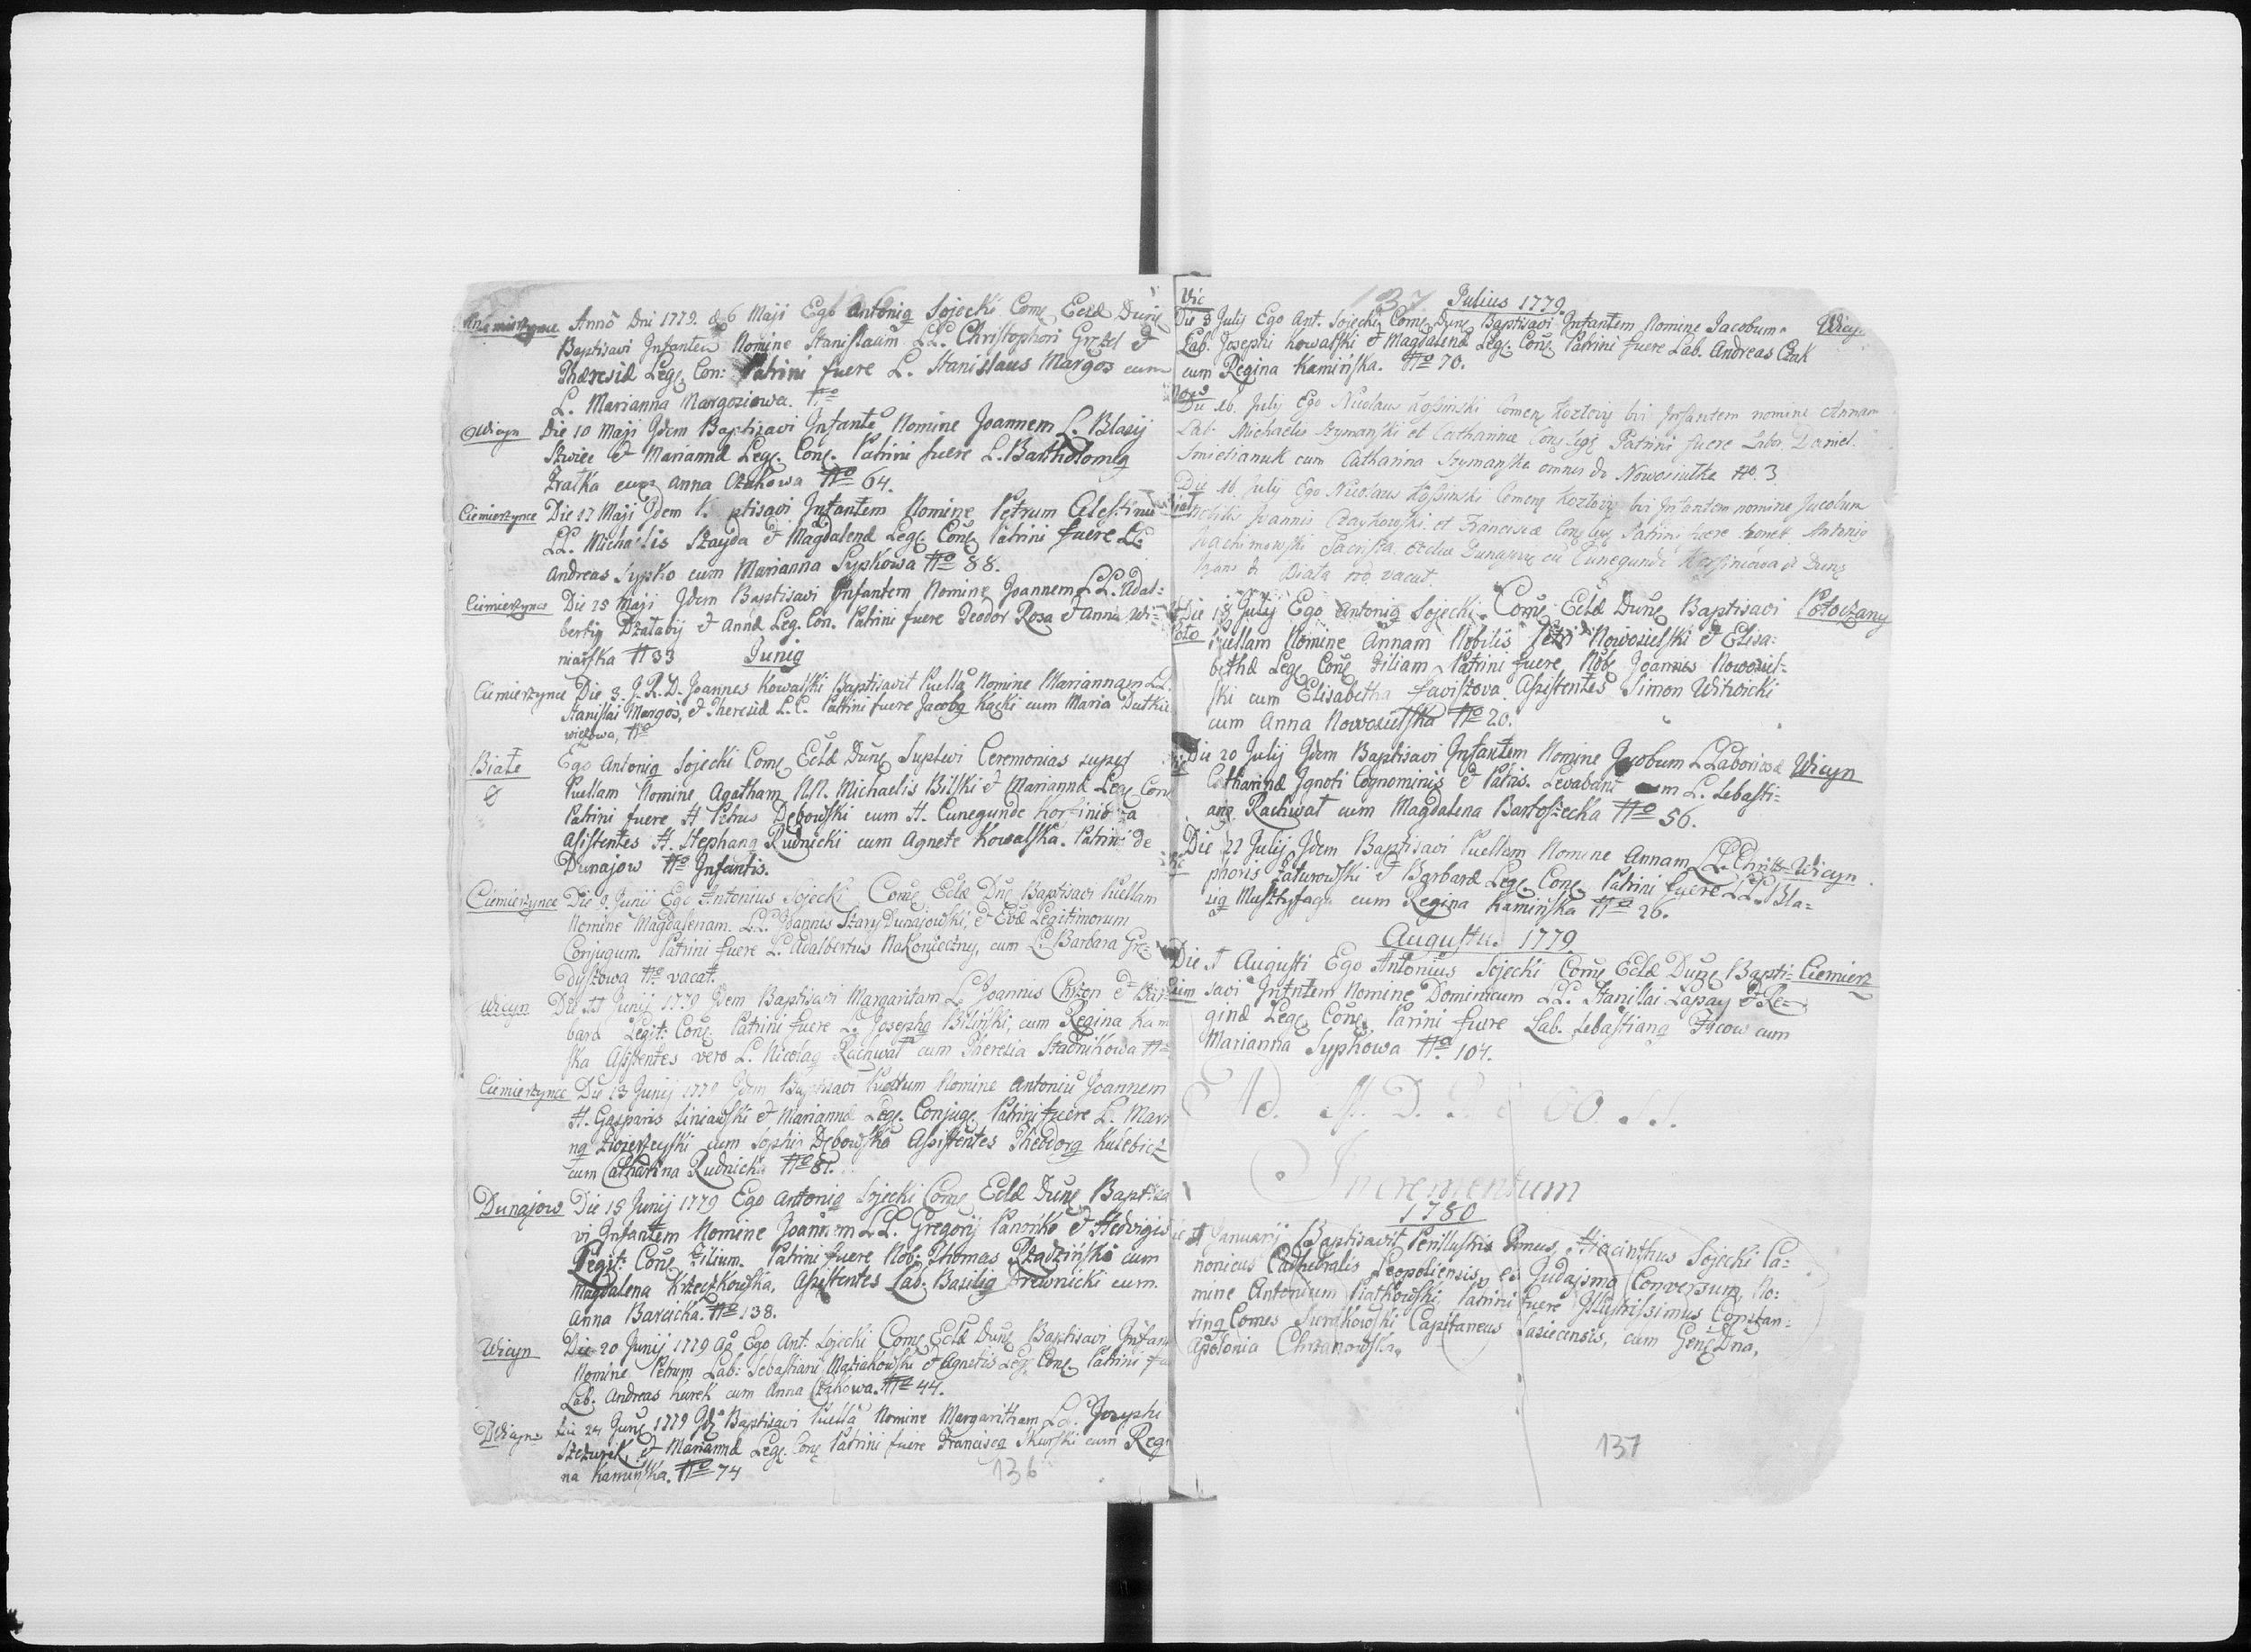 Ciemierzynce Anno Dni 1779. d 6 Maji Ego Antoniq Sojecki Come Eclæ Dune
Baptisavi Infantem Nomine Stanislaum LL. Christophori Grzlel et
Theresiæ Lege Con: Patrini fuere L. Stanislaus Margos cum
L. Marianna Margosiowa. No
Wicyn Die 10 Maji Idem Baptisavi Infante Nomine Joannem L. Blasij
Szwiec et Mariannæ Lege. Cone. Patrini fuere L. Bartholomeq
Fratka cum Anna Czakowa No 64.
Ciemierzynce Die 17 Maji Idem Baptisavi Infantem Nomine Petrum Celestinu
LL. Michaelis Szayda et Magdalenæ Lege Cone Patrini fuere LL
Andreas Sypko cum Marianna Sypkowa No 88.
Ciemierzynce Die 25 Maji Idem Baptisavi Infantem Nomine Joannem LL. Adal=
bertiq Działabij et Annæ Leg. Con. Patrini fuere Teodor Rosa et Anna Wi=
niarska N 33 Juniq
Ciemierzynce Die 3. J. R. D. Joannes Kowalski Baptisavit Puella Nomine Mariannam LL.
Stanislai Margos, et Theresiæ L. C. Patrini fuere Jacobq Kącki cum Maria Dutkie
wiczowa, No
Białe Ego Antoniq Sojecki Come Eclæ Dune Suplevi Ceremonias super
Puellam Nomine Agatham N.N. Michaelis Bilski et Mariannæ Lege Cone
Patrini fuere H Petrus Dębowski cum H. Cunegunde
Asistentes H. Stephanq Rudnicki cum Agnete Kowalska. Patrini de
Dunajow No Infantis.
Ciemierzynce Die 9. Junij Ego Antonius Sojecki Come Eclæ Dne Baptisavi Puellam
Nomine Magdalenam. LL. Joannis Stary Dunajowski, et Evæ Legitimorum
Conjugum. Patrini fuere L. Adalbertus Nakonieczny, cum L. Barbara Grę=
dyszowa No vacat.
Wicyn Die 11 Junij 1779 Idem Baptisavi Margaritam L. Joannis Chrzon et Bar
baræ Legit: Cone. Patrini fuere L. Josephq Biliński, cum Regina Kam
ska Asistentes vero L. Nicolaq Rachwał cum Theresia Stadnikowa No
Ciemierzynce Die 13 Junij 1779 Idem Baptisavi Nomine Antoniu Joannem
H. Gasparis Siniawski et Mariannæ Lege. Conjuge. Patrini fuere L. Mar
nq cum Sophia Dębowska Asistentes Theodorq Kulebicz
cum Catharina Rudnicka No 81.
Dunajow Die 15 Junij 1779 Ego Antoniq Sojecki Come Eclæ Dune Baptisa
vi Infantem Nomine Joannem LL. Gregorij Panońko et Hedvigis
Legit: Cone Filium. Patrini fuere Nob: Thomas Rządziński cum
Magdalena Krzeczkowska, Asistentes Lab: Basiliq Drewnicki cum
Anna Barcicka. No 138.
Wicyn Die 20 Junij 1779 Ao Ego Ant: Sojecki Come Eclæ Dune Baptisavi Infan
Nomine Petrum Lab: Sebastiani Maziakowski et Agnetis Lege Cone Patrini fu
Lab. Andreas Kurek cum Anna Czakowa. No 44.
Wicyn Die 24 June 1779 Id Baptisavi Puella Nomine Margaritham LL. Josephi
Szczurek, et Mariannæ Lege. Cone Patrini fuere Franciscq Skurski cum Regi
na Kamińska. No 74
136
137 Julius 1779.
Wic
Die 3 Julij Ego Ant. Sojecki Come Dune Baptisavi Infantem Nomine Jacobum Wicyn
Lab. Josephi Kowalski et Magdalenæ Lege. Cone Patrini fuere Lab. Andreas Czak
cum Regina Kamińska. No 70.
Nowo
Die 16. Julij Ego Nicolaus Łosinski Comene Kozloviq bvi Infantem nomine Annam
Lab. Michaelis Szymanski et Catharinæ Cong lege Patrini fuere Labor. Daniel
Smietianuk cum Catharina Szymanska omnes de Nowosiulka No. 3
Die 16. julij Ego Nicolaus Łosinski Comene Kozloviq bvi Infantem nomine Jacobum
Nobilis Joannis Czaykowski et Franciscæ Cong lege Patrini fuere honet. Antoniq
Joachimowski Ecclæ Dunajovie cu Cunegunde Korfiniowa de Dune
Infans de Białe No vacat.
Poto Die 18 Julij Ego Antoniq Sojecki Come Eclæ Dune Baptisavi Potoczany
Puellam Nomine Annam Nobilis Petri Nowosielski et Elisa=
bethæ Lege Cone Filiam Patrini fuere Nob. Joannes Nowosiel=
ski cum Elisabetha Asistentes Simon Witwicki
cum Anna Nowosielska No 20.
Die 20 Julij Idem Baptisavi Infantem Nomine Jacobum LLaboriosæ Wicyn
Catharinæ Ignoti Cognominis et Patris. Levabant cum L. Sebasti=
anq Rachwał cum Magdalena Bartoszecka No 56.
Die 22 Julij Idem Baptisavi Puellam Nomine Annam LL. Christo= Wicyn
phoris Zaturowski et Barbaræ Lege. Cone. Patrini fuere LL. Bla=
siq cum Regina Kamińska No 26.
Augustus 1779
Die 1 Augusti Ego Antonius Sojecki Come Eclæ Dune Bapti= Ciemierz
savi Infntem Nomine Dominicum LL. Stanislai Łapay et Re=
ginæ Lege Cone. Parini fuere Lab. Sebastianq Hicow cum
Marianna Sypkowa No. 104.
Ad. M. D. G. OO. SS.
Incrementum
1780
Die 1 Januarij Baptisavit Perillustris Dmus Hiacinthus Sojecki Ca=
nonicus Cathedralis Leopoliensis, ex Judajsmo Conversum, No=
mine Antonium Piatkowski, Patrini fuere Illustrissimus Constan=
tinq Comes Capitaneus cum Gene Dna,
Apolonia Chrzanowska.
137